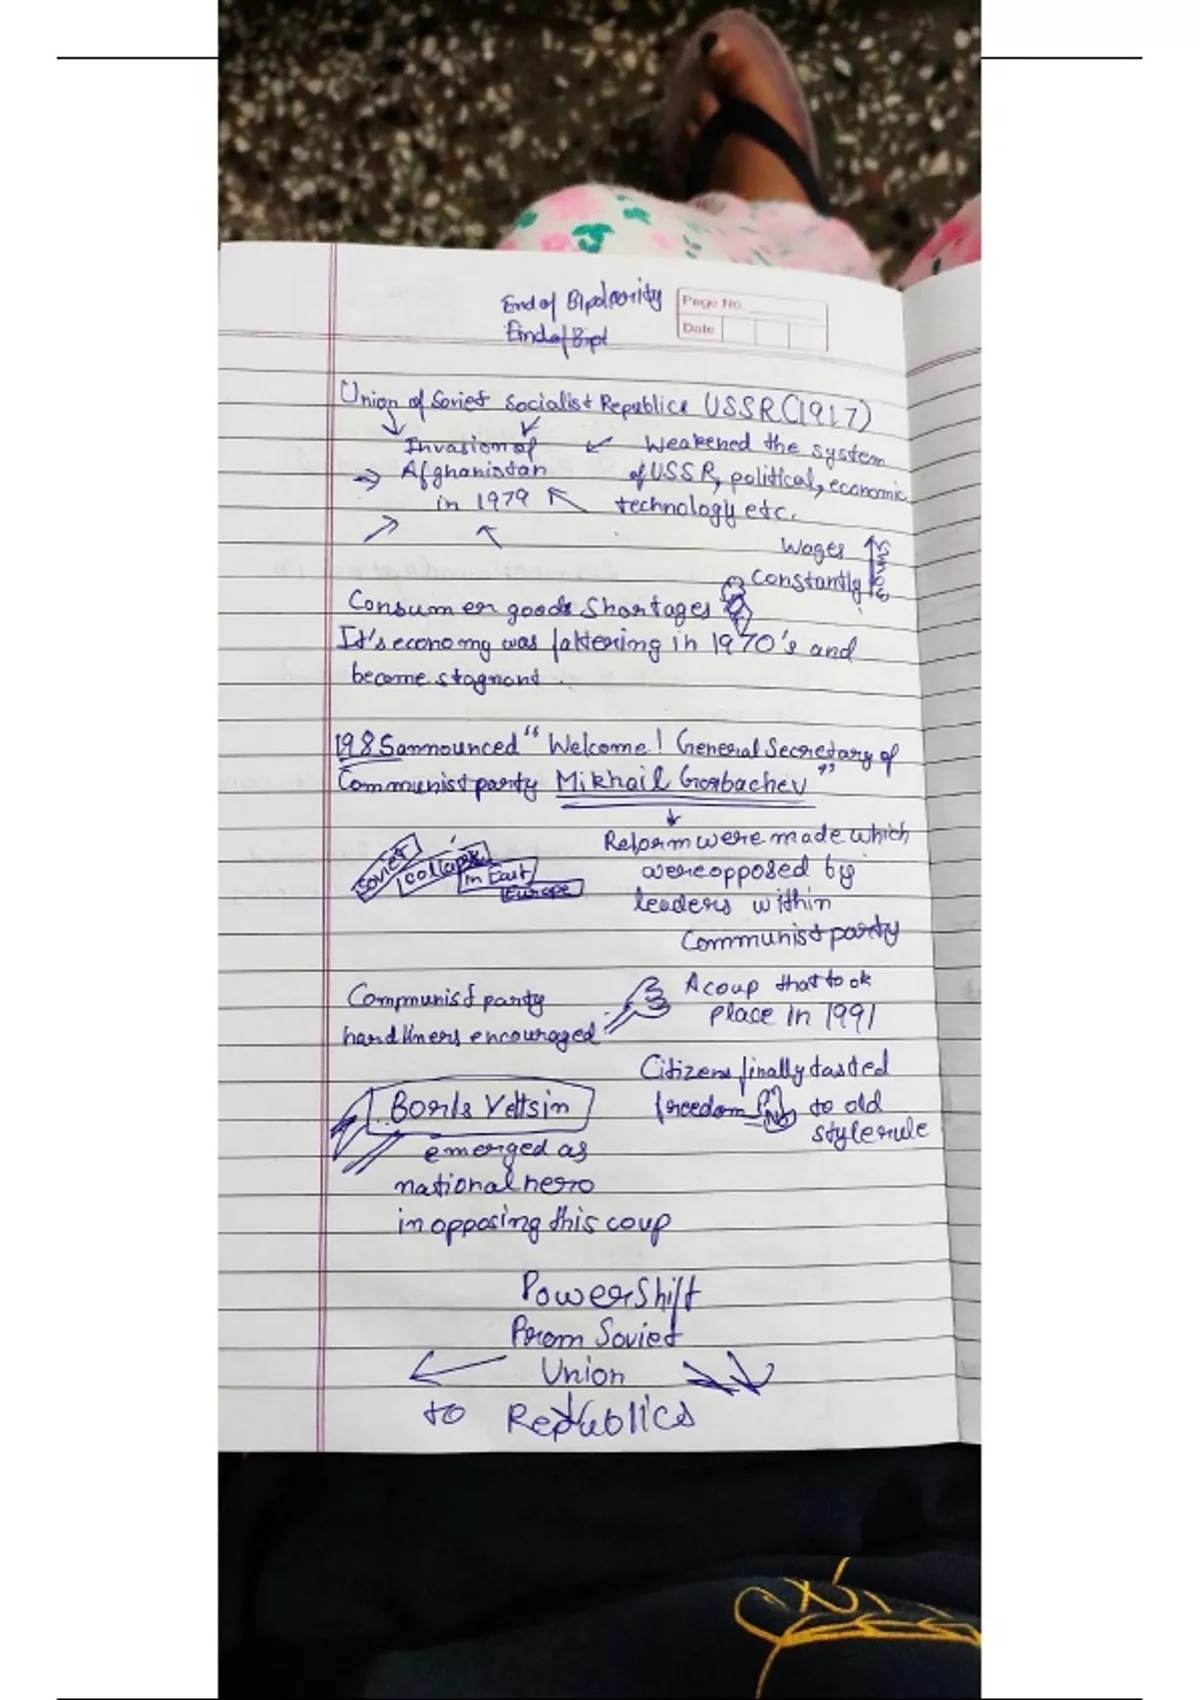 End of Bipolarity
Page No.
Date
End of Bipl
Union of Soviet Socialist Republics USSR (1917)
Invasion of
Afghanistan
in 1979
Weakened the system
of USSR, political, economic
technology etc.
Wages
Constantly
Consumer goods Shortages
It's economy was faltering in 1970's and
become stagnant.
1985 announced "Welcome! General Secretary of
Communist party Mikhail Gorbachev"
Soviet
collapse
in East
Europe
Reform were made which
were opposed by
leaders within
Communist party
Communist party
hardliners encouraged
A coup that took
place in 1991
Citizens finally tasted
freedom No to old
style rule
Boris Yeltsin
emerged as
national hero
in opposing this coup
Power Shift
From Soviet
Union
to Republics